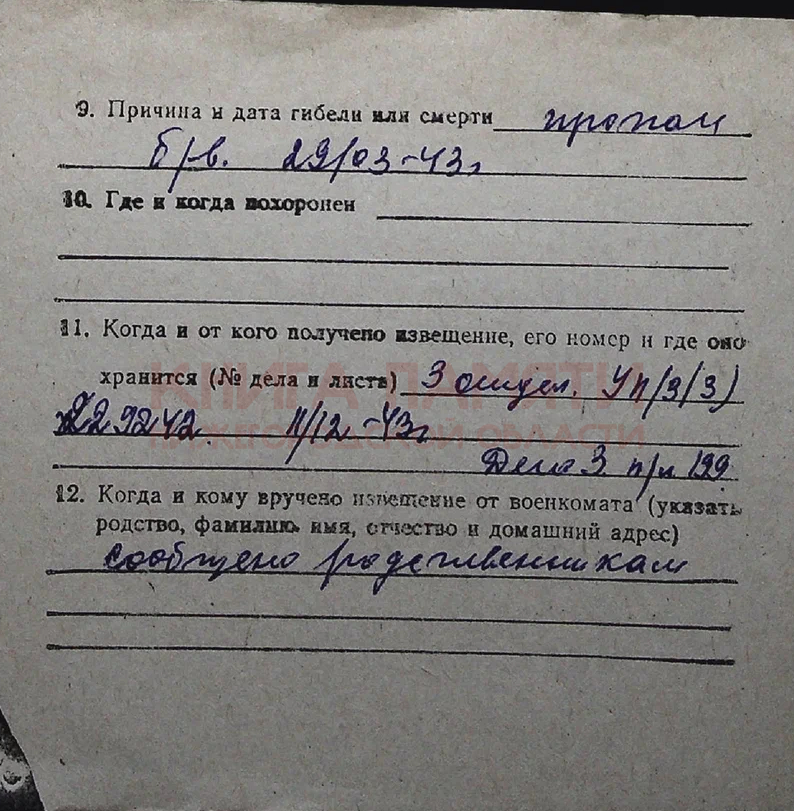 9. Причина и дата гибели или смерти пропал
б/в. 29/03-43г
10. Где и когда похоронен
11. Когда и от кого получено извещение, его номер и где оно
хранится (№ дела и листа) 3 отдел. Уп/3/3)
КНИГА ПАМЯТИ
229242. 11/12-43г
НИЖЕГОРОДСКОЙ ОБЛАСТИ
Дело 3 п/л 199
12. Когда и кому вручено извещение от военкомата (указать
родство, фамилию, имя, отчество и домашний адрес)
сообщено родственникам